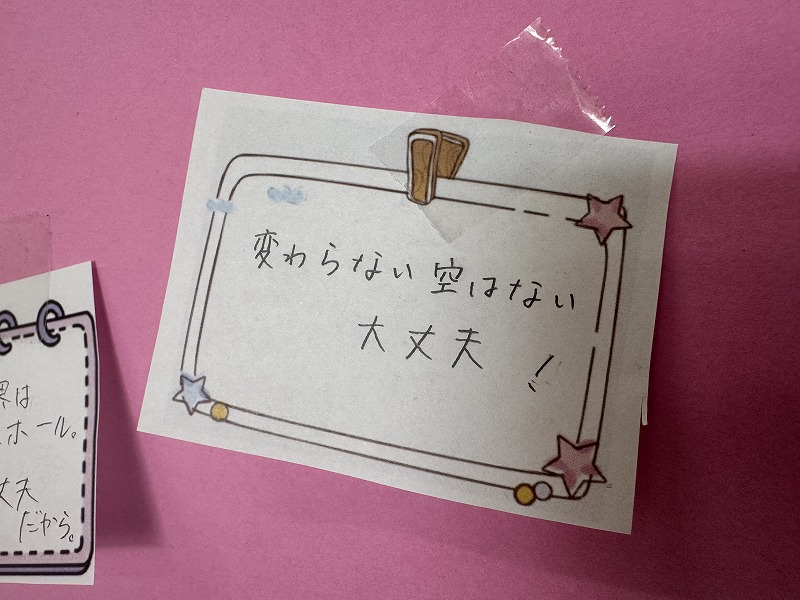 変わらない空はない
大丈夫!
界は
ホール。
丈夫
だから。